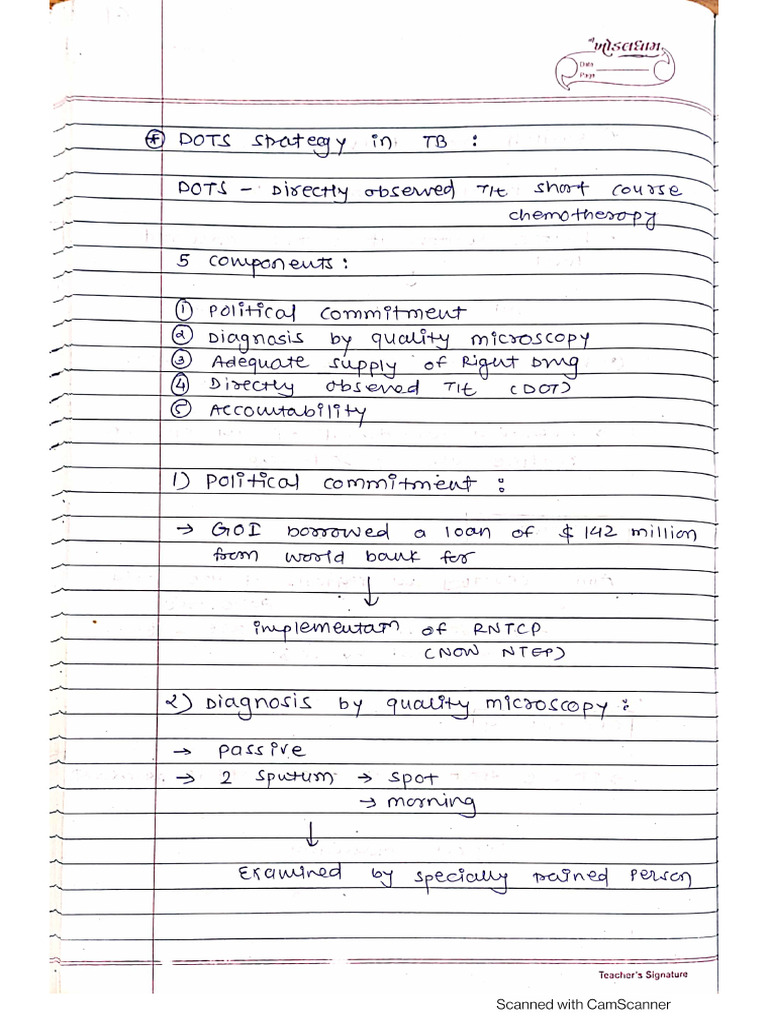 શ્રી ખોડલધામ
Date
Page
* DOTS Strategy in TB :
DOTS - Directly observed T/t short course
chemotherapy
5 components :
① Political commitment
② Diagnosis by quality microscopy
③ Adequate supply of Right Drug
④ Directly observed T/t (DOT)
⑤ Accountability
1) Political commitment :
→ GOI borrowed a loan of $ 142 million
from world bank for
↓
implementatn of RNTCP
(NOW NTEP)
2) Diagnosis by quality microscopy :
→ passive
→ 2 sputum → spot
→ morning
↓
Examined by specially trained person
Teacher's Signature
Scanned with CamScanner